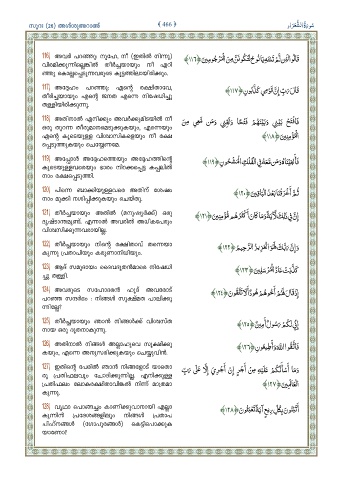 സൂറ (26) അശ്ശുഅറാഅ്
❮ 466 ❯
سُورَةُ الشُّعَرَاءِ
116) അവർ പറഞ്ഞു: നൂഹേ, നീ (ഇതിൽ നിന്നു)
വിരമിക്കുന്നില്ലെങ്കിൽ തീർച്ചയായും നീ എറി
ഞ്ഞു കൊല്ലപ്പെടുന്നവരുടെ കൂട്ടത്തിലായിരിക്കും.
قَالُوا لَئِن لَّمْ تَنتَهِ يَا نُوحُ لَتَكُونَنَّ مِنَ الْمَرْجُومِينَ ﴿١١٦﴾
117) അദ്ദേഹം പറഞ്ഞു: എന്റെ രക്ഷിതാവേ,
തീർച്ചയായും എന്റെ ജനത എന്നെ നിഷേധിച്ചു
തള്ളിയിരിക്കുന്നു.
قَالَ رَبِّ إِنَّ قَوْمِي كَذَّبُونِ ﴿١١٧﴾
118) അതിനാൽ എനിക്കും അവർക്കുമിടയിൽ നീ
ഒരു തുറന്ന തീരുമാനമെടുക്കുകയും, എന്നെയും
എന്റെ കൂടെയുള്ള വിശ്വാസികളെയും നീ രക്ഷ
പ്പെടുത്തുകയും ചെയ്യേണമേ.
فَافْتَحْ بَيْنِي وَبَيْنَهُمْ فَتْحًا وَنَجِّنِي وَمَن مَّعِيَ مِنَ
الْمُؤْمِنِينَ ﴿١١٨﴾
119) അപ്പോൾ അദ്ദേഹത്തെയും അദ്ദേഹത്തിന്റെ
കൂടെയുള്ളവരെയും ഭാരം നിറക്കപ്പെട്ട കപ്പലിൽ
നാം രക്ഷപ്പെടുത്തി.
فَأَنجَيْنَاهُ وَمَن مَّعَهُ فِي الْفُلْكِ الْمَشْحُونِ ﴿١١٩﴾
120) പിന്നെ ബാക്കിയുള്ളവരെ അതിന് ശേഷം
നാം മുക്കി നശിപ്പിക്കുകയും ചെയ്തു.
ثُمَّ أَغْرَقْنَا بَعْدُ الْبَاقِينَ ﴿١٢٠﴾
121) തീർച്ചയായും അതിൽ (മനുഷ്യർക്ക്) ഒരു
ദൃഷ്ടാന്തമുണ്ട്. എന്നാൽ അവരിൽ അധികപേരും
വിശ്വസിക്കുന്നവരായില്ല.
إِنَّ فِي ذَٰلِكَ لَآيَةً وَمَا كَانَ أَكْثَرُهُم مُّؤْمِنِينَ ﴿١٢١﴾
122) തീർച്ചയായും നിന്റെ രക്ഷിതാവ് തന്നെയാ
കുന്നു പ്രതാപിയും കരുണാനിധിയും.
وَإِنَّ رَبَّكَ لَهُوَ الْعَزِيزُ الرَّحِيمُ ﴿١٢٢﴾
123) ആദ് സമുദായം ദൈവദൂതൻമാരെ നിഷേധി
ച്ചു തള്ളി.
كَذَّبَتْ عَادٌ الْمُرْسَلِينَ ﴿١٢٣﴾
124) അവരുടെ സഹോദരൻ ഹൂദ് അവരോട്
പറഞ്ഞ സന്ദർഭം : നിങ്ങൾ സൂക്ഷ്മത പാലിക്കു
ന്നില്ലേ?
إِذْ قَالَ لَهُمْ أَخُوهُمْ هُودٌ أَلَا تَتَّقُونَ ﴿١٢٤﴾
125) തീർച്ചയായും ഞാൻ നിങ്ങൾക്ക് വിശ്വസ്ത
നായ ഒരു ദൂതനാകുന്നു.
إِنِّي لَكُمْ رَسُولٌ أَمِينٌ ﴿١٢٥﴾
126) അതിനാൽ നിങ്ങൾ അല്ലാഹുവെ സൂക്ഷിക്കു
കയും, എന്നെ അനുസരിക്കുകയും ചെയ്യുവിൻ.
فَاتَّقُوا اللَّهَ وَأَطِيعُونِ ﴿١٢٦﴾
127) ഇതിന്റെ പേരിൽ ഞാൻ നിങ്ങളോട് യാതൊ
രു പ്രതിഫലവും ചോദിക്കുന്നില്ല. എനിക്കുള്ള
പ്രതിഫലം ലോകരക്ഷിതാവിങ്കൽ നിന്ന് മാത്രമാ
കുന്നു.
وَمَا أَسْأَلُكُمْ عَلَيْهِ مِنْ أَجْرٍ إِنْ أَجْرِيَ إِلَّا عَلَىٰ رَبِّ
الْعَالَمِينَ ﴿١٢٧﴾
128) വൃഥാ പൊങ്ങച്ചം കാണിക്കുവാനായി എല്ലാ
കുന്നിൻ പ്രദേശങ്ങളിലും നിങ്ങൾ പ്രതാപ
ചിഹ്നങ്ങൾ (ഗോപുരങ്ങൾ) കെട്ടിപൊക്കുക
യാണോ?
أَتَبْنُونَ بِكُلِّ رِيعٍ آيَةً تَعْبَثُونَ ﴿١٢٨﴾